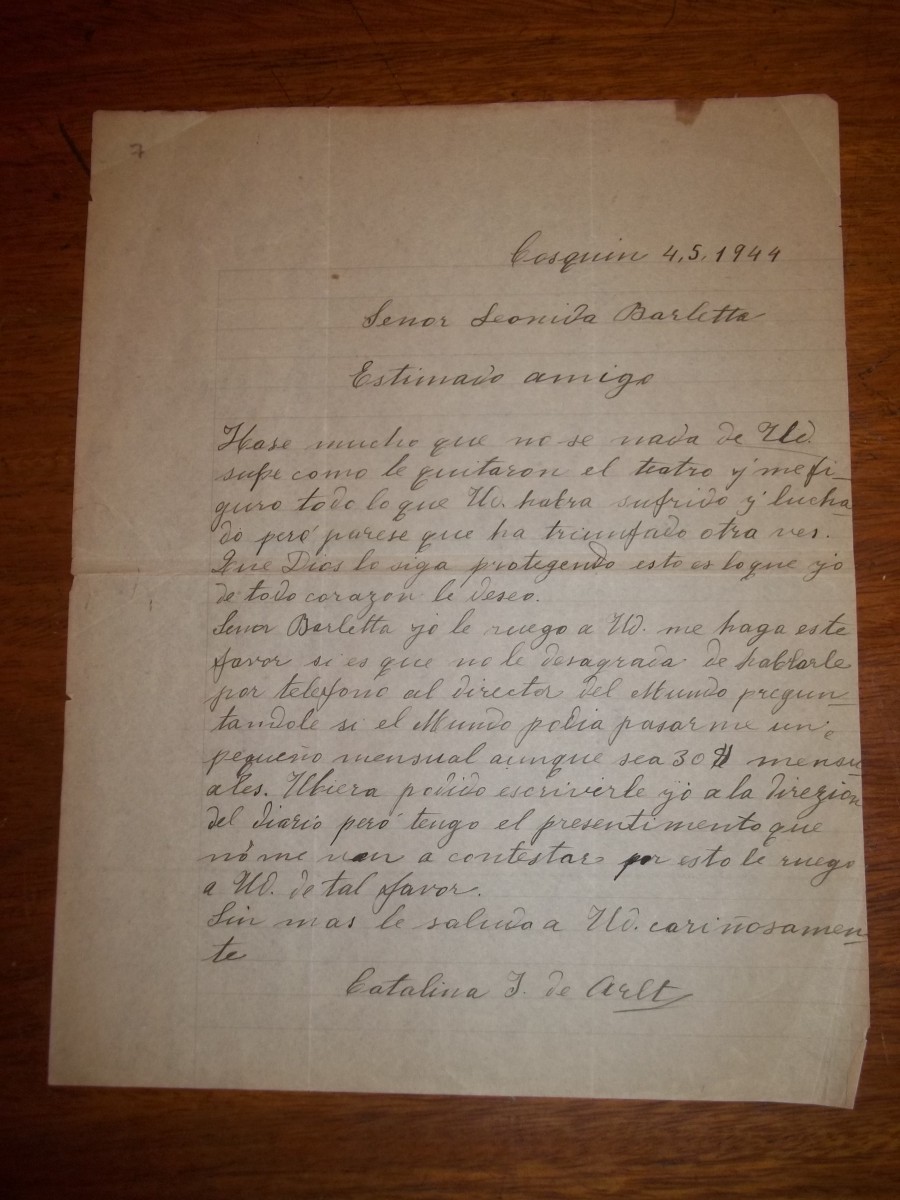 7
Cosquin 4,5,1944
Senor Leonida Barletta
Estimado amigo
Hase mucho que no se nada de Ud.
supe como le quitaron el teatro y me fi-
guro todo lo que Ud. habra sufrido y lucha-
do però parese que ha triunfado otra ves.
Que Dios lo siga protegendo esto es lo que yo
de todo corazon le deseo.
Senor Barletta yo le ruego a Ud. me haga este
favor si es que no le desagrada de hablarle
por telefono al director del Mundo pregun-
tandole si el Mundo podia pasarme un
pequeño mensual aunque sea 30 $ mensu
ales. Ubiera podido escriverle yo a la direzion
del diario però tengo el presentimento que
nò me van a contestar por esto le ruego
a Ud. de tal favor.
Sin mas le saluda a Ud. cariñosamen-
te
Catalina I. de Arlt